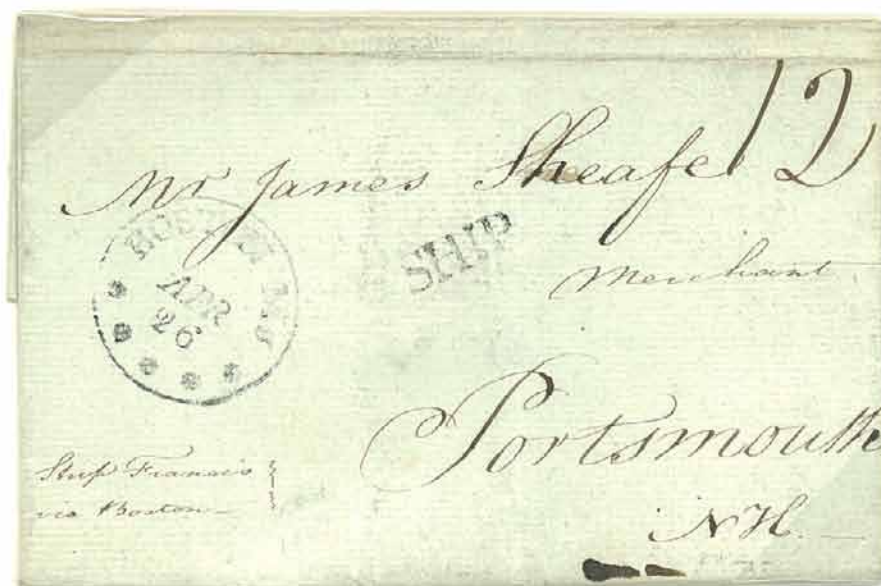 12
Mr James Sheafe
SHIP
Merchant
BOSTON MS
APR
26
Portsmouth
NH.
Ship Francis
via Boston